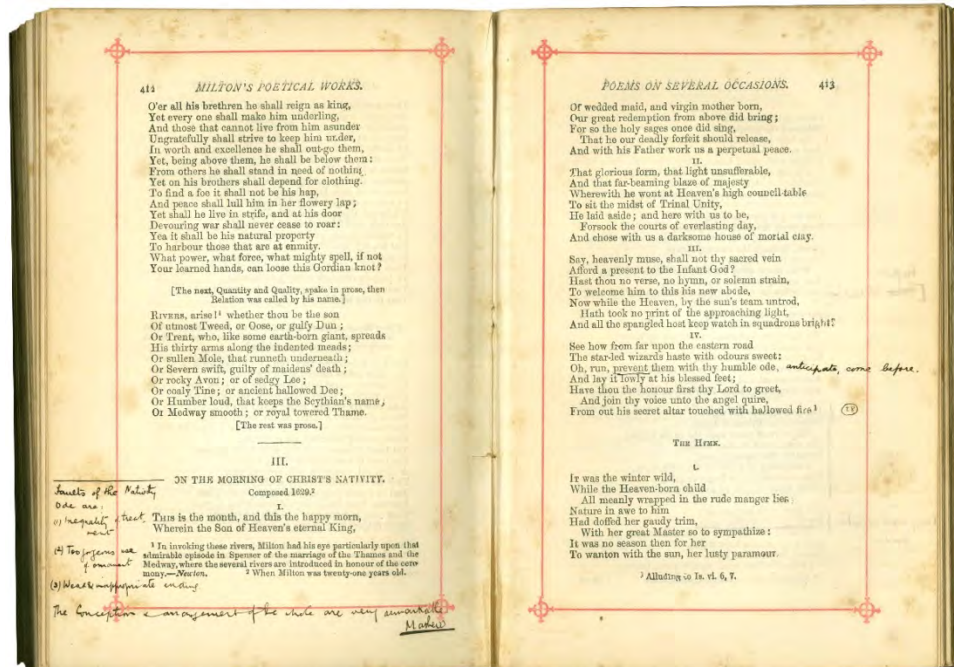 412 MILTON'S POETICAL WORKS.
O'er all his brethren he shall reign as king,
Yet every one shall make him underling,
And those that cannot live from him asunder
Ungratefully shall strive to keep him under,
In worth and excellence he shall out-go them,
Yet, being above them, he shall be below them:
From others he shall stand in need of nothing,
Yet on his brothers shall depend for clothing.
To find a foe it shall not be his hap,
And peace shall lull him in her flowery lap;
Yet shall he live in strife, and at his door
Devouring war shall never cease to roar:
Yea it shall be his natural property
To harbour those that are at enmity.
What power, what force, what mighty spell, if not
Your learned hands, can loose this Gordian knot?
[The next, Quantity and Quality, spake in prose, then
Relation was called by his name.]
RIVERS, arise!¹ whether thou be the son
Of utmost Tweed, or Oose, or gulfy Dun;
Or Trent, who, like some earth-born giant, spreads
His thirty arms along the indented meads;
Or sullen Mole, that runneth underneath;
Or Severn swift, guilty of maidens' death;
Or rocky Avon; or of sedgy Lee;
Or coaly Tine; or ancient hallowed Dee;
Or Humber loud, that keeps the Scythian's name,
Or Medway smooth; or royal towered Thame.
[The rest was prose.]
III.
ON THE MORNING OF CHRIST'S NATIVITY.
Composed 1629.²
I.
THIS is the month, and this the happy morn,
Wherein the Son of Heaven's eternal King,
¹ In invoking these rivers, Milton had his eye particularly upon that
admirable episode in Spenser of the marriage of the Thames and the
Medway, where the several rivers are introduced in honour of the cere-
mony.—Newton. ² When Milton was twenty-one years old.
Faults of the Nativity
Ode are:
(1) Inequality of treat
ment
(2) Too gorgeous use
of ornament
(3) Weak & inappropriate ending
The Conception & arrangement of the whole are very remarkable
POEMS ON SEVERAL OCCASIONS. 413
Of wedded maid, and virgin mother born,
Our great redemption from above did bring;
For so the holy sages once did sing,
That he our deadly forfeit should release,
And with his Father work us a perpetual peace.
II.
That glorious form, that light unsufferable,
And that far-beaming blaze of majesty
Wherewith he wont at Heaven's high council-table
To sit the midst of Trinal Unity,
He laid aside; and here with us to be,
Forsook the courts of everlasting day,
And chose with us a darksome house of mortal clay.
III.
Say, heavenly muse, shall not thy sacred vein
Afford a present to the Infant God?
Hast thou no verse, no hymn, or solemn strain,
To welcome him to this his new abode,
Now while the Heaven, by the sun's team untrod,
Hath took no print of the approaching light,
And all the spangled host keep watch in squadrons bright?
IV.
See how from far upon the eastern road
The star-led wizards haste with odours sweet:
Oh, run, prevent them with thy humble ode, anticipate, come before.
And lay it lowly at his blessed feet;
Have thou the honour first thy Lord to greet,
And join thy voice unto the angel quire,
From out his secret altar touched with hallowed fire¹
THE HYMN.
I.
IT was the winter wild,
While the Heaven-born child
All meanly wrapped in the rude manger lies
Nature in awe to him
Had doffed her gaudy trim,
With her great Master so to sympathize:
It was no season then for her
To wanton with the sun, her lusty paramour.
¹ Alluding to Is. vi. 6, 7.